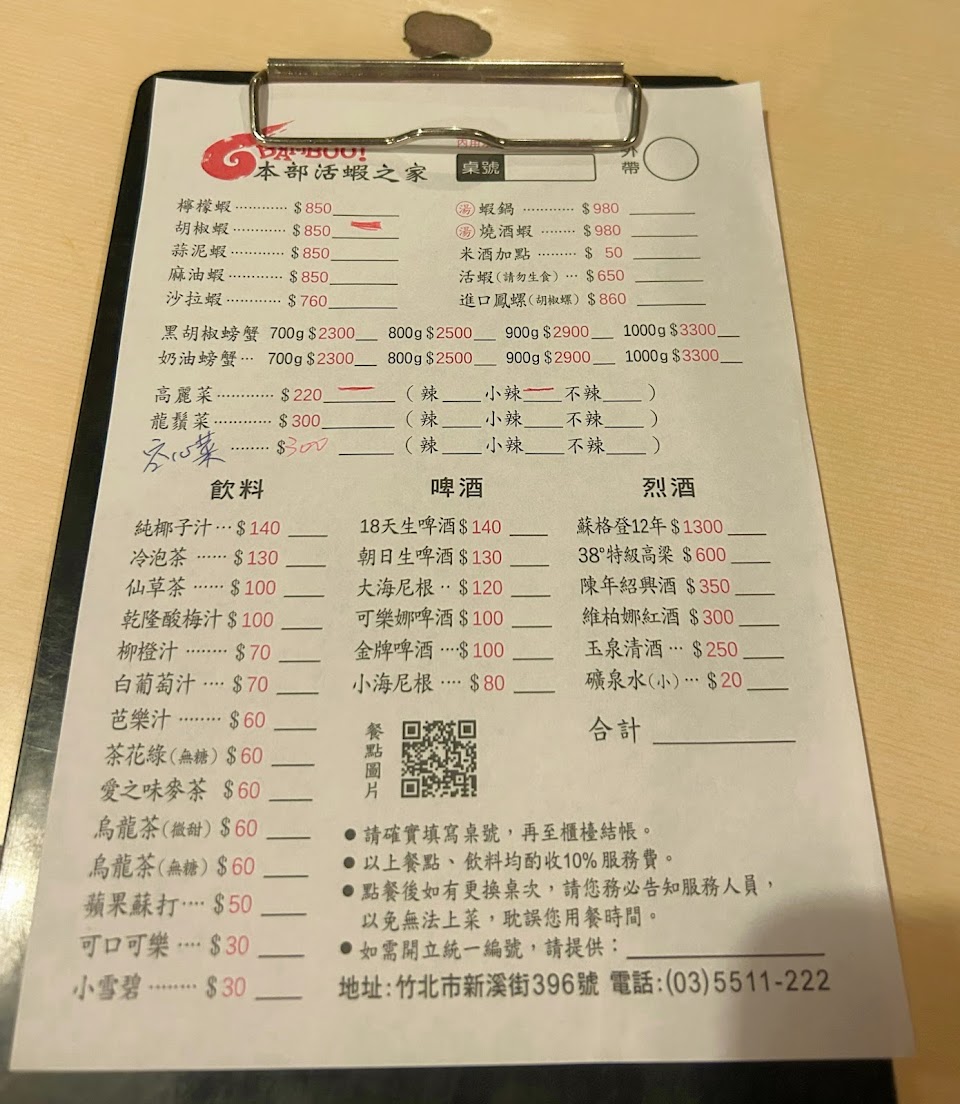 BAMBOO!
本部活蝦之家
桌號
外帶
檸檬蝦············ $850
胡椒蝦············ $850
蒜泥蝦············ $850
麻油蝦············ $850
沙拉蝦············ $760
湯 蝦鍋 ············ $980
湯 燒酒蝦 ········ $980
米酒加點 ········· $ 50
活蝦(請勿生食) ··· $650
進口鳳螺(胡椒螺) $860
黑胡椒螃蟹 700g $2300 800g $2500 900g $2900 1000g $3300
奶油螃蟹··· 700g $2300 800g $2500 900g $2900 1000g $3300
高麗菜············ $220 ( 辣 小辣 不辣 )
龍鬚菜············ $300 ( 辣 小辣 不辣 )
空心菜 ········ $300 ( 辣 小辣 不辣 )
飲料
純椰子汁··· $140
冷泡茶 ······ $130
仙草茶 ······ $100
乾隆酸梅汁 $100
柳橙汁 ········ $70
白葡萄汁 ···· $70
芭樂汁 ········ $60
茶花綠(無糖) $60
愛之味麥茶 $60
烏龍茶(微甜) $60
烏龍茶(無糖) $60
蘋果蘇打···· $50
可口可樂 ···· $30
小雪碧 ········ $30
啤酒
18天生啤酒 $140
朝日生啤酒 $130
大海尼根 ·· $120
可樂娜啤酒 $100
金牌啤酒 ····$100
小海尼根 ···· $80
烈酒
蘇格登12年 $1300
38°特級高粱 $600
陳年紹興酒 $350
維柏娜紅酒 $300
玉泉清酒 ··· $250
礦泉水(小) ··· $20
合計
餐點圖片
● 請確實填寫桌號，再至櫃檯結帳。
● 以上餐點、飲料均酌收10%服務費。
● 點餐後如有更換桌次，請您務必告知服務人員，
以免無法上菜，耽誤您用餐時間。
● 如需開立統一編號，請提供：
地址:竹北市新溪街396號 電話:(03)5511-222